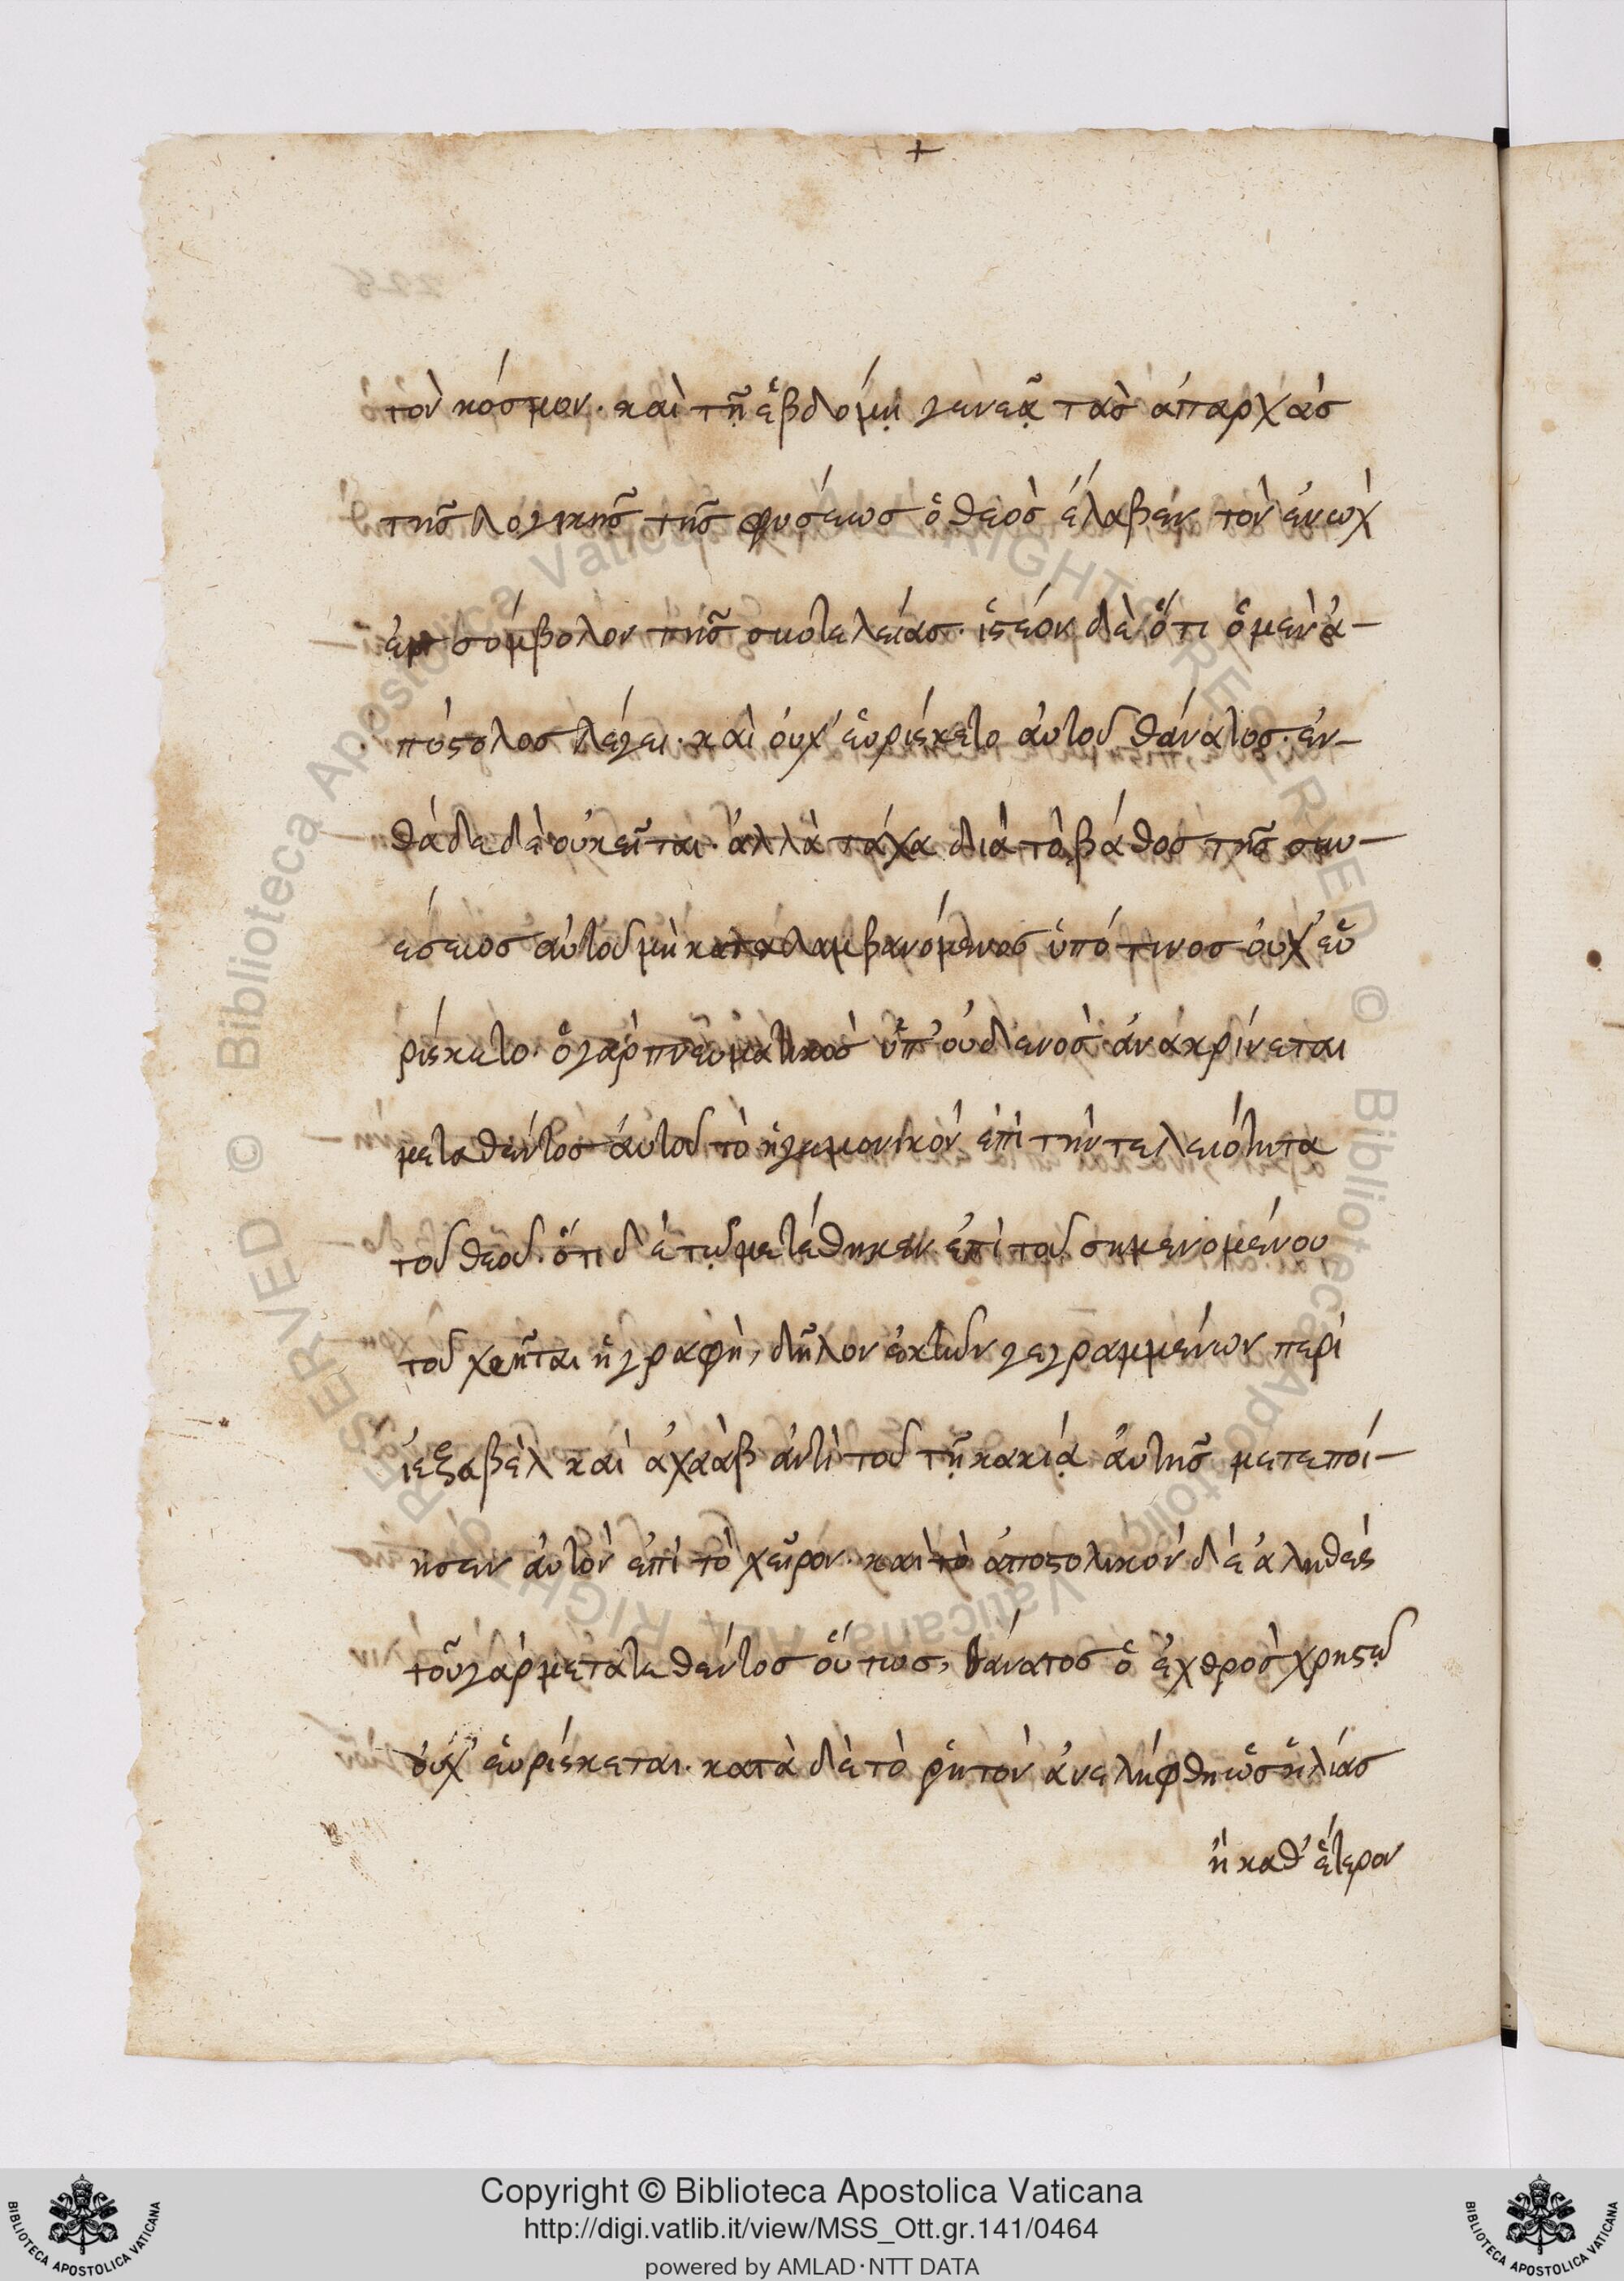 +
τὸν κόσμον. καὶ τῇ ἑβδόμῃ γενεᾷ τὰσ ἀπαρχὰσ
τῆσ λογικῆσ τῆσ φύσεωσ ὁ θεὸσ ἔλαβεν τὸν ἐνὼχ
σύμβολον τῆσ συντελείασ. ἰστέον δὲ ὅτι ὁ μὲν ἀ-
πόστολοσ λέγει. καὶ οὐχ' εὑρίσκετο αὐτοῦ θάνατοσ. ἐν-
θάδε δὲ οὐ κεῖται. ἀλλὰ τάχα διὰ τὸ βάθοσ τῆσ συν-
έσεωσ αὐτοῦ μὴ καταλαμβανόμενοσ ὑπό τινοσ οὐχ' εὑ
ρίσκετο. ὁ γὰρ πνευματικὸσ ὑπ' οὐδενὸσ ἀνακρίνεται
μεταθέντοσ αὐτοῦ τὸ ἡγεμονικὸν ἐπὶ τὴν τελειότητα
τοῦ θεοῦ. ὅτι δὲ τῷ μετέθηκεν ἐπὶ τοῦ σημενομένου
τοῦ χρῆται ἡ γραφὴ, δῆλον ἐκ τῶν γεγραμμένων περὶ
ἰεζαβὲλ καὶ ἀχαὰβ ἀντὶ τοῦ τῇ κακίᾳ αὐτῆσ μετεποί-
ησεν αὐτὸν ἐπὶ τὸ χεῖρον. καὶ τὸ ἀποστολικὸν δὲ ἀληθὲς
τοῦ γὰρ μετατεθέντοσ οὕτωσ, θάνατοσ ὁ ἐχθρὸσ χρηστῷ
οὐχ' εὑρίσκεται. κατὰ δὲ τὸ ῥητὸν ἀνελήφθη ὡσ ἡλίασ
ἢ καθ' ἕτερον
Copyright © Biblioteca Apostolica Vaticana
http://digi.vatlib.it/view/MSS_Ott.gr.141/0464
powered by AMLAD·NTT DATA